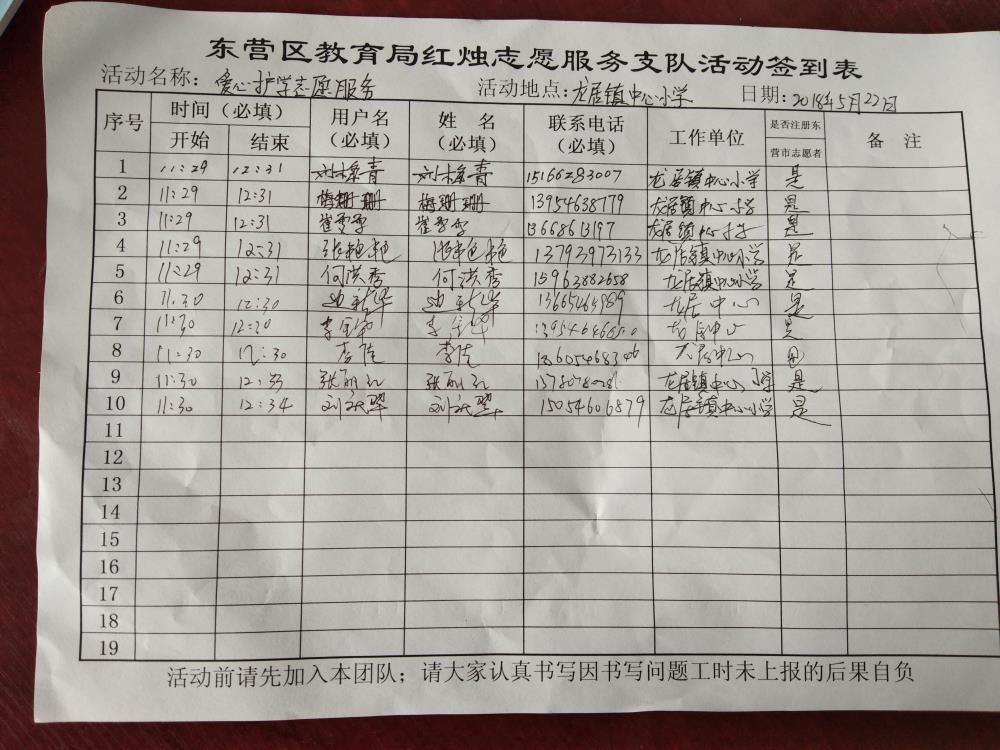 东营区教育局红烛志愿服务支队活动签到表
活动名称：爱心护学志愿服务 活动地点：龙居镇中心小学 日期：2018年5月22日
序号 时间（必填） 用户名（必填） 姓 名（必填） 联系电话（必填） 工作单位 是否注册东营市志愿者 备 注
开始 结束
1 11:29 12:31 刘梅青 刘梅青 15166283007 龙居镇中心小学 是
2 11:29 12:31 梅珊珊 梅珊珊 13954638779 龙居镇中心小学 是
3 11:29 12:31 崔雪雪 崔雪雪 13668613197 龙居镇中心小学 是
4 11:29 12:31 张艳艳 张艳艳 13793973133 龙居镇中心小学 是
5 11:29 12:31 何洪秀 何洪秀 15963882658 龙居镇中心小学 是
6 11:30 12:30 龙居中心 是
7 11:30 12:30 龙居中心 是
8 11:30 12:30 李佳 李佳 龙居中心
9 11:30 12:33 张丽红 张丽红 龙居镇中心小学 是
10 11:30 12:34 15054606879 龙居镇中心小学 是
11
12
13
14
15
16
17
18
19
活动前请先加入本团队；请大家认真书写因书写问题工时未上报的后果自负